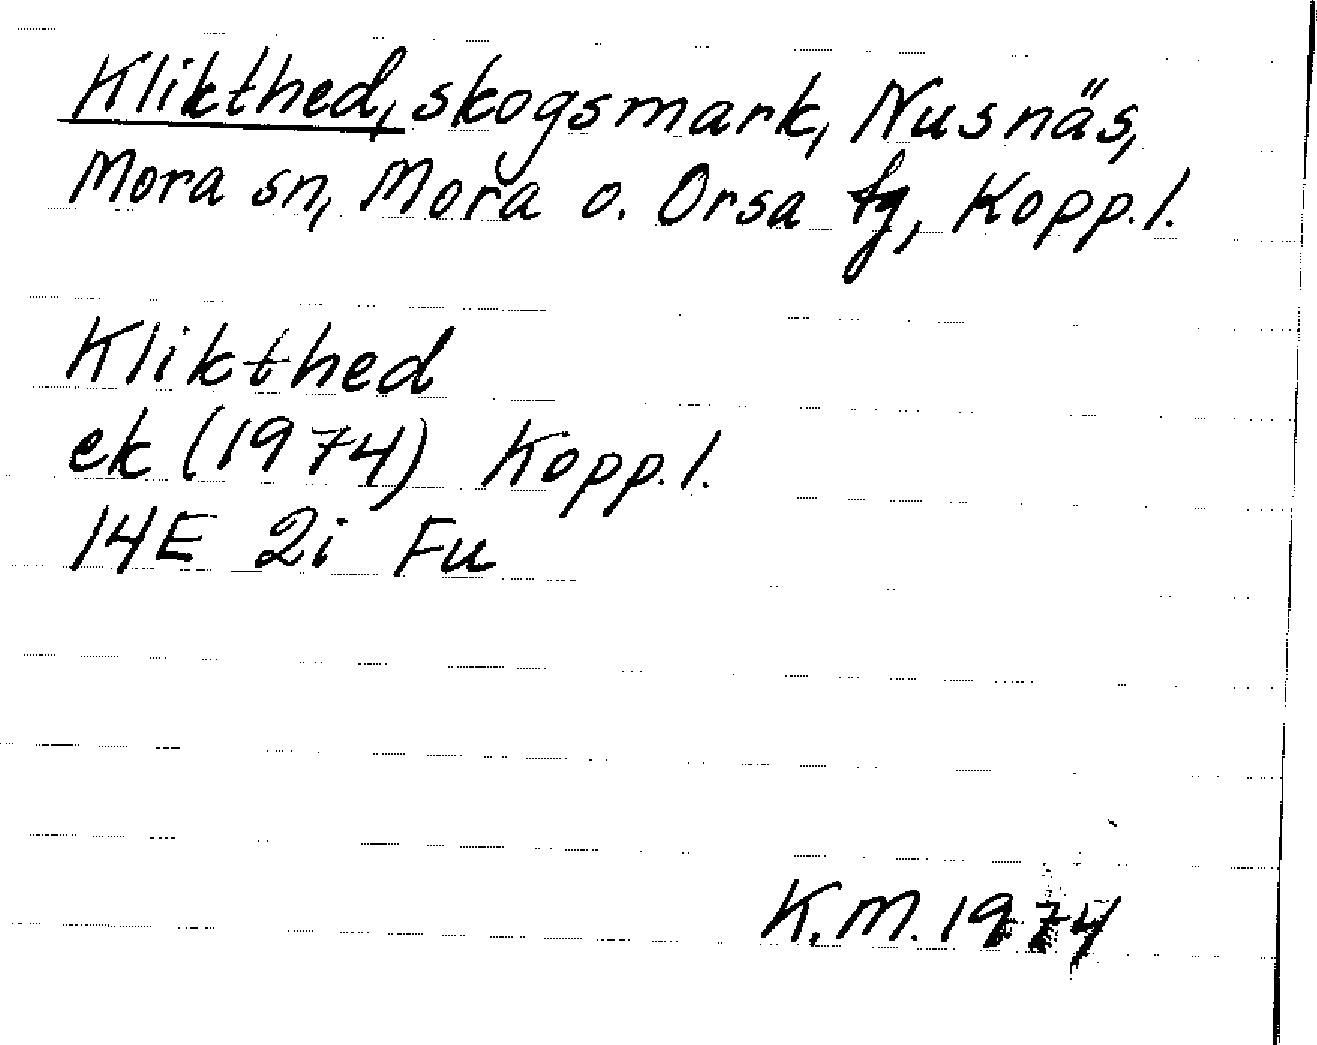 Klikthed, skogsmark, Nusnäs,
Mora sn, Mora o. Orsa tg, Kopp.l.
Klikthed
ek (1974) Kopp.l.
14E 2i Fu
K.M. 1974